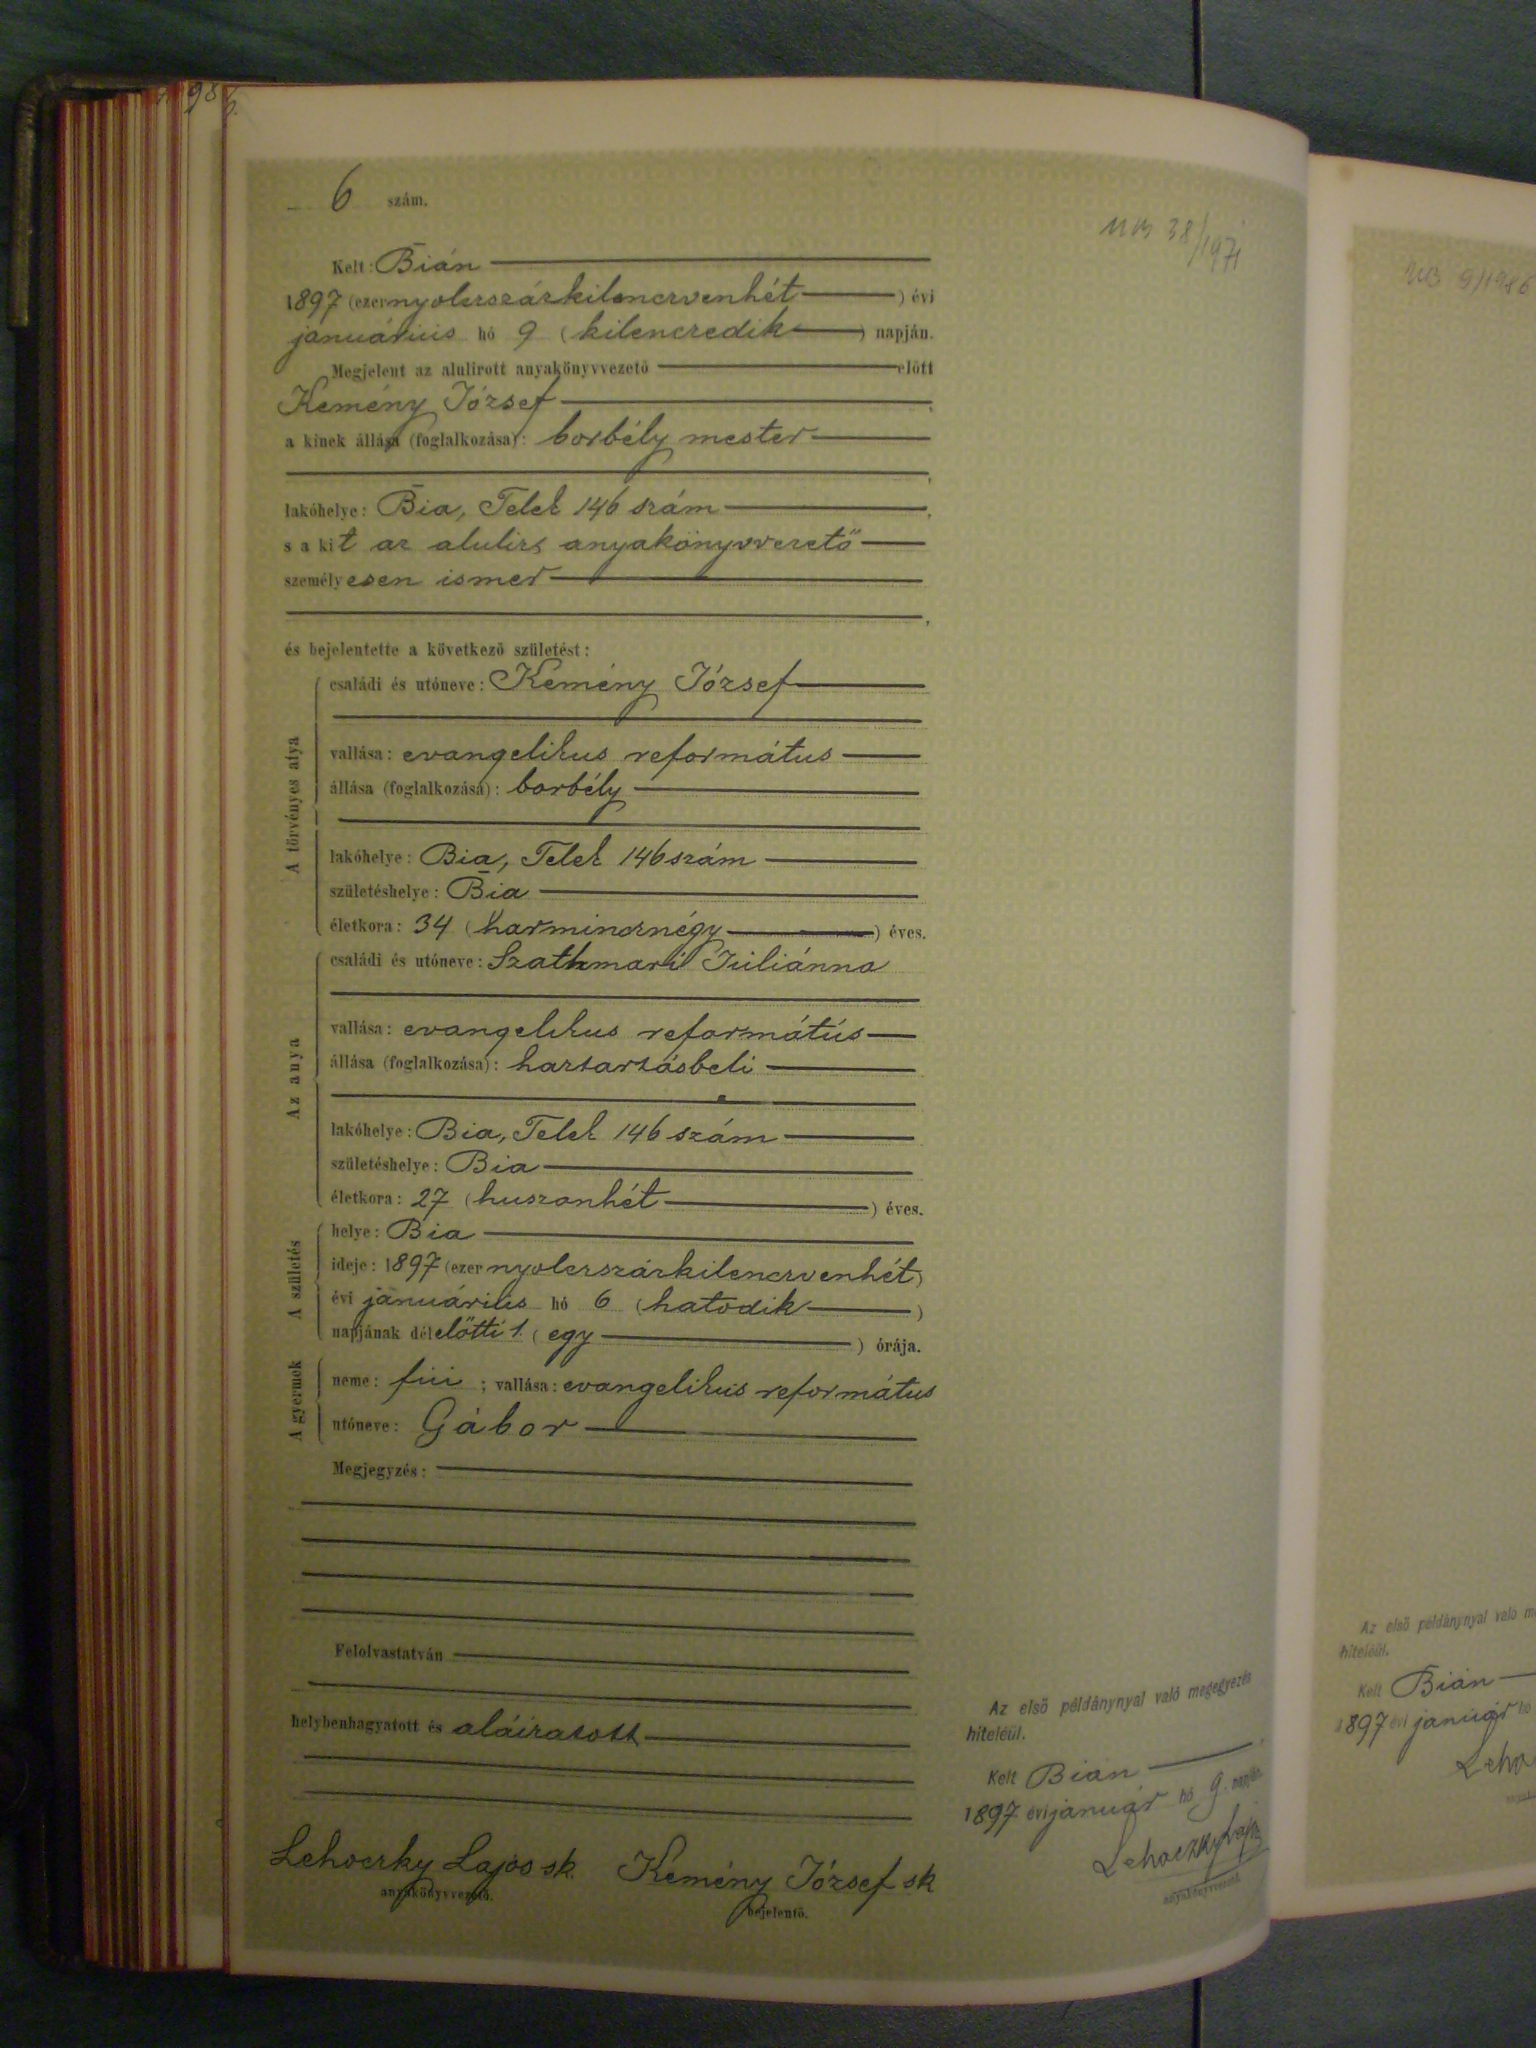 6 szám.
Kelt: Bián
1897 (ezernyolczszázkilenczvenhét) évi
januárius hó 9 (kilenczedik) napján.
Megjelent az alulirott anyakönyvvezető előtt
Kemény József,
a kinek állása (foglalkozása): borbély mester
lakóhelye: Bia, Telek 146 szám,
s a kit az alulirt anyakönyvvezető
személyesen ismer
és bejelentette a következő születést:
A törvényes atya
családi és utóneve: Kemény József
vallása: evangelikus református
állása (foglalkozása): borbély
lakóhelye: Bia, Telek 146 szám
születéshelye: Bia
életkora: 34 (harmincznégy) éves.
Az anya
családi és utóneve: Szathmari Juliánna
vallása: evangelikus református
állása (foglalkozása): háztartásbeli
lakóhelye: Bia, Telek 146 szám
születéshelye: Bia
életkora: 27 (huszonhét) éves.
A születés
helye: Bia
ideje: 1897 (ezernyolczszázkilenczvenhét)
évi januárius hó 6 (hatodik)
napjának délelőtti 1. (egy) órája.
A gyermek
neme: fiu; vallása: evangelikus református
utóneve: Gábor
Megjegyzés:
Felolvastatván
helybenhagyatott és aláiratott
Lehoczky Lajos sk. Kemény József sk
anyakönyvvezető. bejelentő.
38/1971
Az első példánynyal való megegyezés
hiteléül.
Kelt Bián
1897 évi január hó 9. napján.
Lehoczky Lajos
anyakönyvvezető.
9/1986
Az első példánynyal való
hiteléül.
Kelt Bián
1897 évi január hó